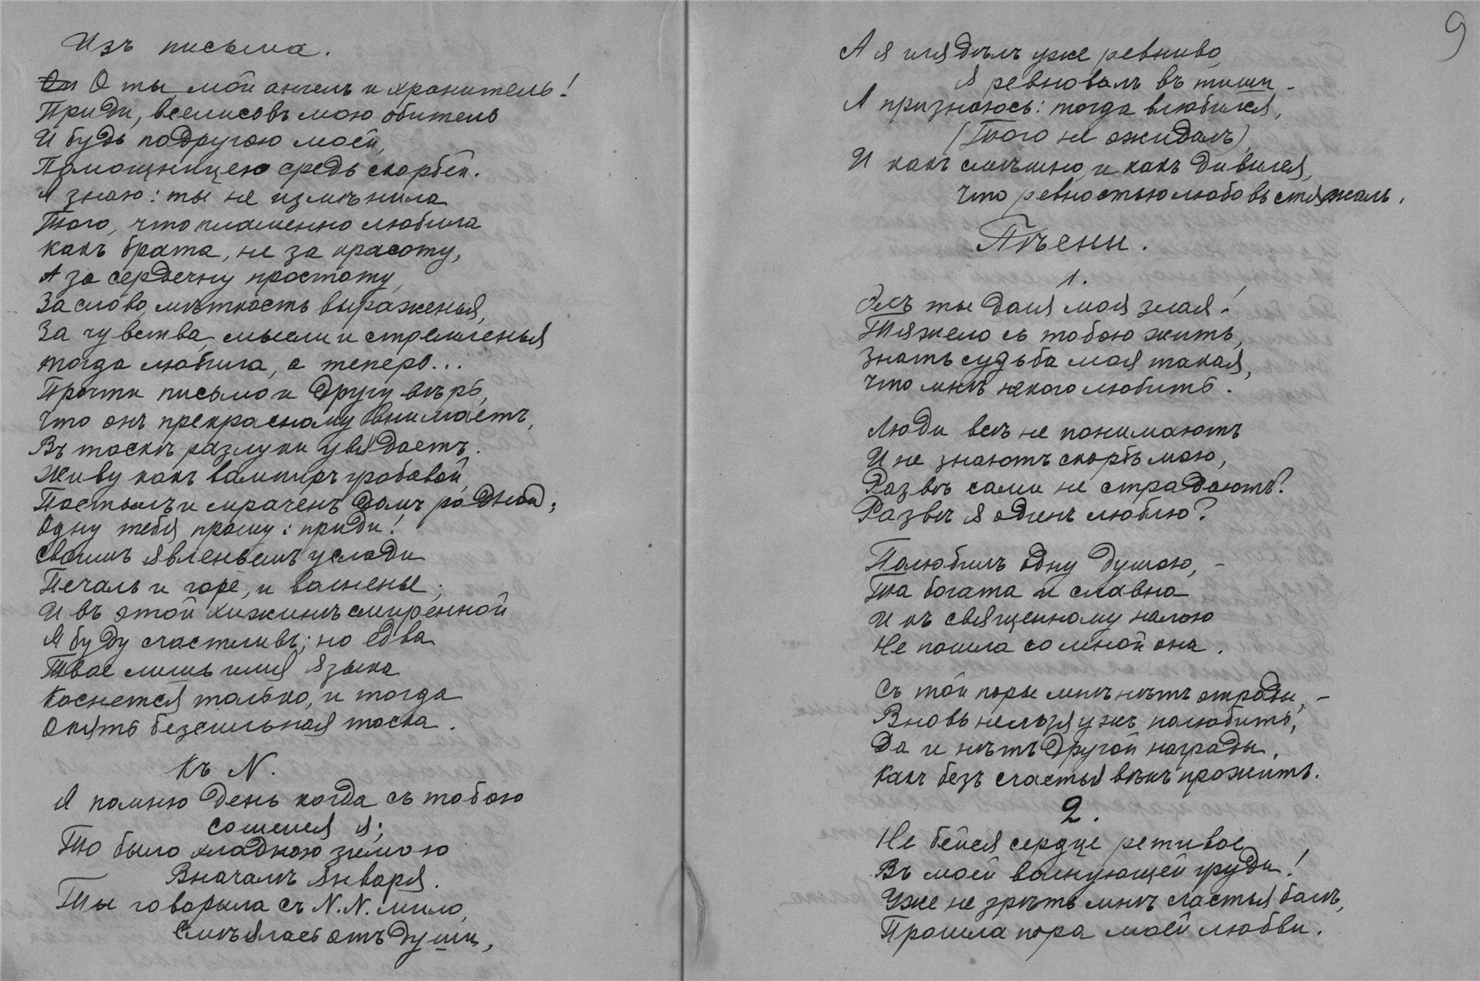 Изъ письма.
О ты, мой ангелъ и хранитель!
Приди, вселисъ въ мою обитель
И будь подругою моей,
Помощницею средь скорбей.
Я знаю: ты не измѣнила
Того, что пламенно любила
Какъ брата, не за красоту,
А за сердечну простоту,
За слово, мѣткость выраженья,
За чувства, мысли и стремленья
Тогда любила, а теперь...
Прочти письмо и другу вѣрь,
Что онъ прекрасному внимаетъ,
Въ тоскѣ разлуки увядаетъ.
Живу какъ вампиръ гробовой,
Постылъ и мраченъ домъ родной;
Одну тебя прошу: приди!
Своимъ явленьемъ услади
Печаль и горе, и волненье;
И въ этой хижинѣ смиренной
Я буду счастливъ; но едва
Твое лишь имя языка
Коснется только, и тогда
Опять безсильная тоска.
Къ N.
Я помню день когда съ тобою
Сошелся я;
То было хладною зимою
Вначалѣ Января.
Ты говорила съ N.N. мило,
Смѣялась отъ души,
9
А я глядѣлъ уже ревниво,
Я ревновалъ въ тиши –
А признаюсь: тогда влюбился,
(Того не ожидалъ)
И какъ смѣшно, и какъ дивился,
Что ревностью любовь стяжалъ.
Пѣсни.
1.
Эхъ ты доля моя злая!
Тяжело съ тобою жить,
Знать судьба моя такая,
Что мнѣ некого любить.
Люди всѣ не понимаютъ
И не знаютъ скорбь мою,
Развѣ сами не страдаютъ?
Развѣ я одинъ люблю?
Полюбилъ одну душою, –
Та богата и славна
И къ священному налою
Не пошла со мной она.
Съ той поры мнѣ нѣтъ отрады, –
Вновь нельзя ужъ полюбить,
Да и нѣтъ другой награды,
Какъ безъ счастья вѣкъ прожить.
2.
Не бейся сердце ретивое
Въ моей волнующей груди!
Уже не зрѣть мнѣ счастья болѣ,
Прошла пора моей любви.